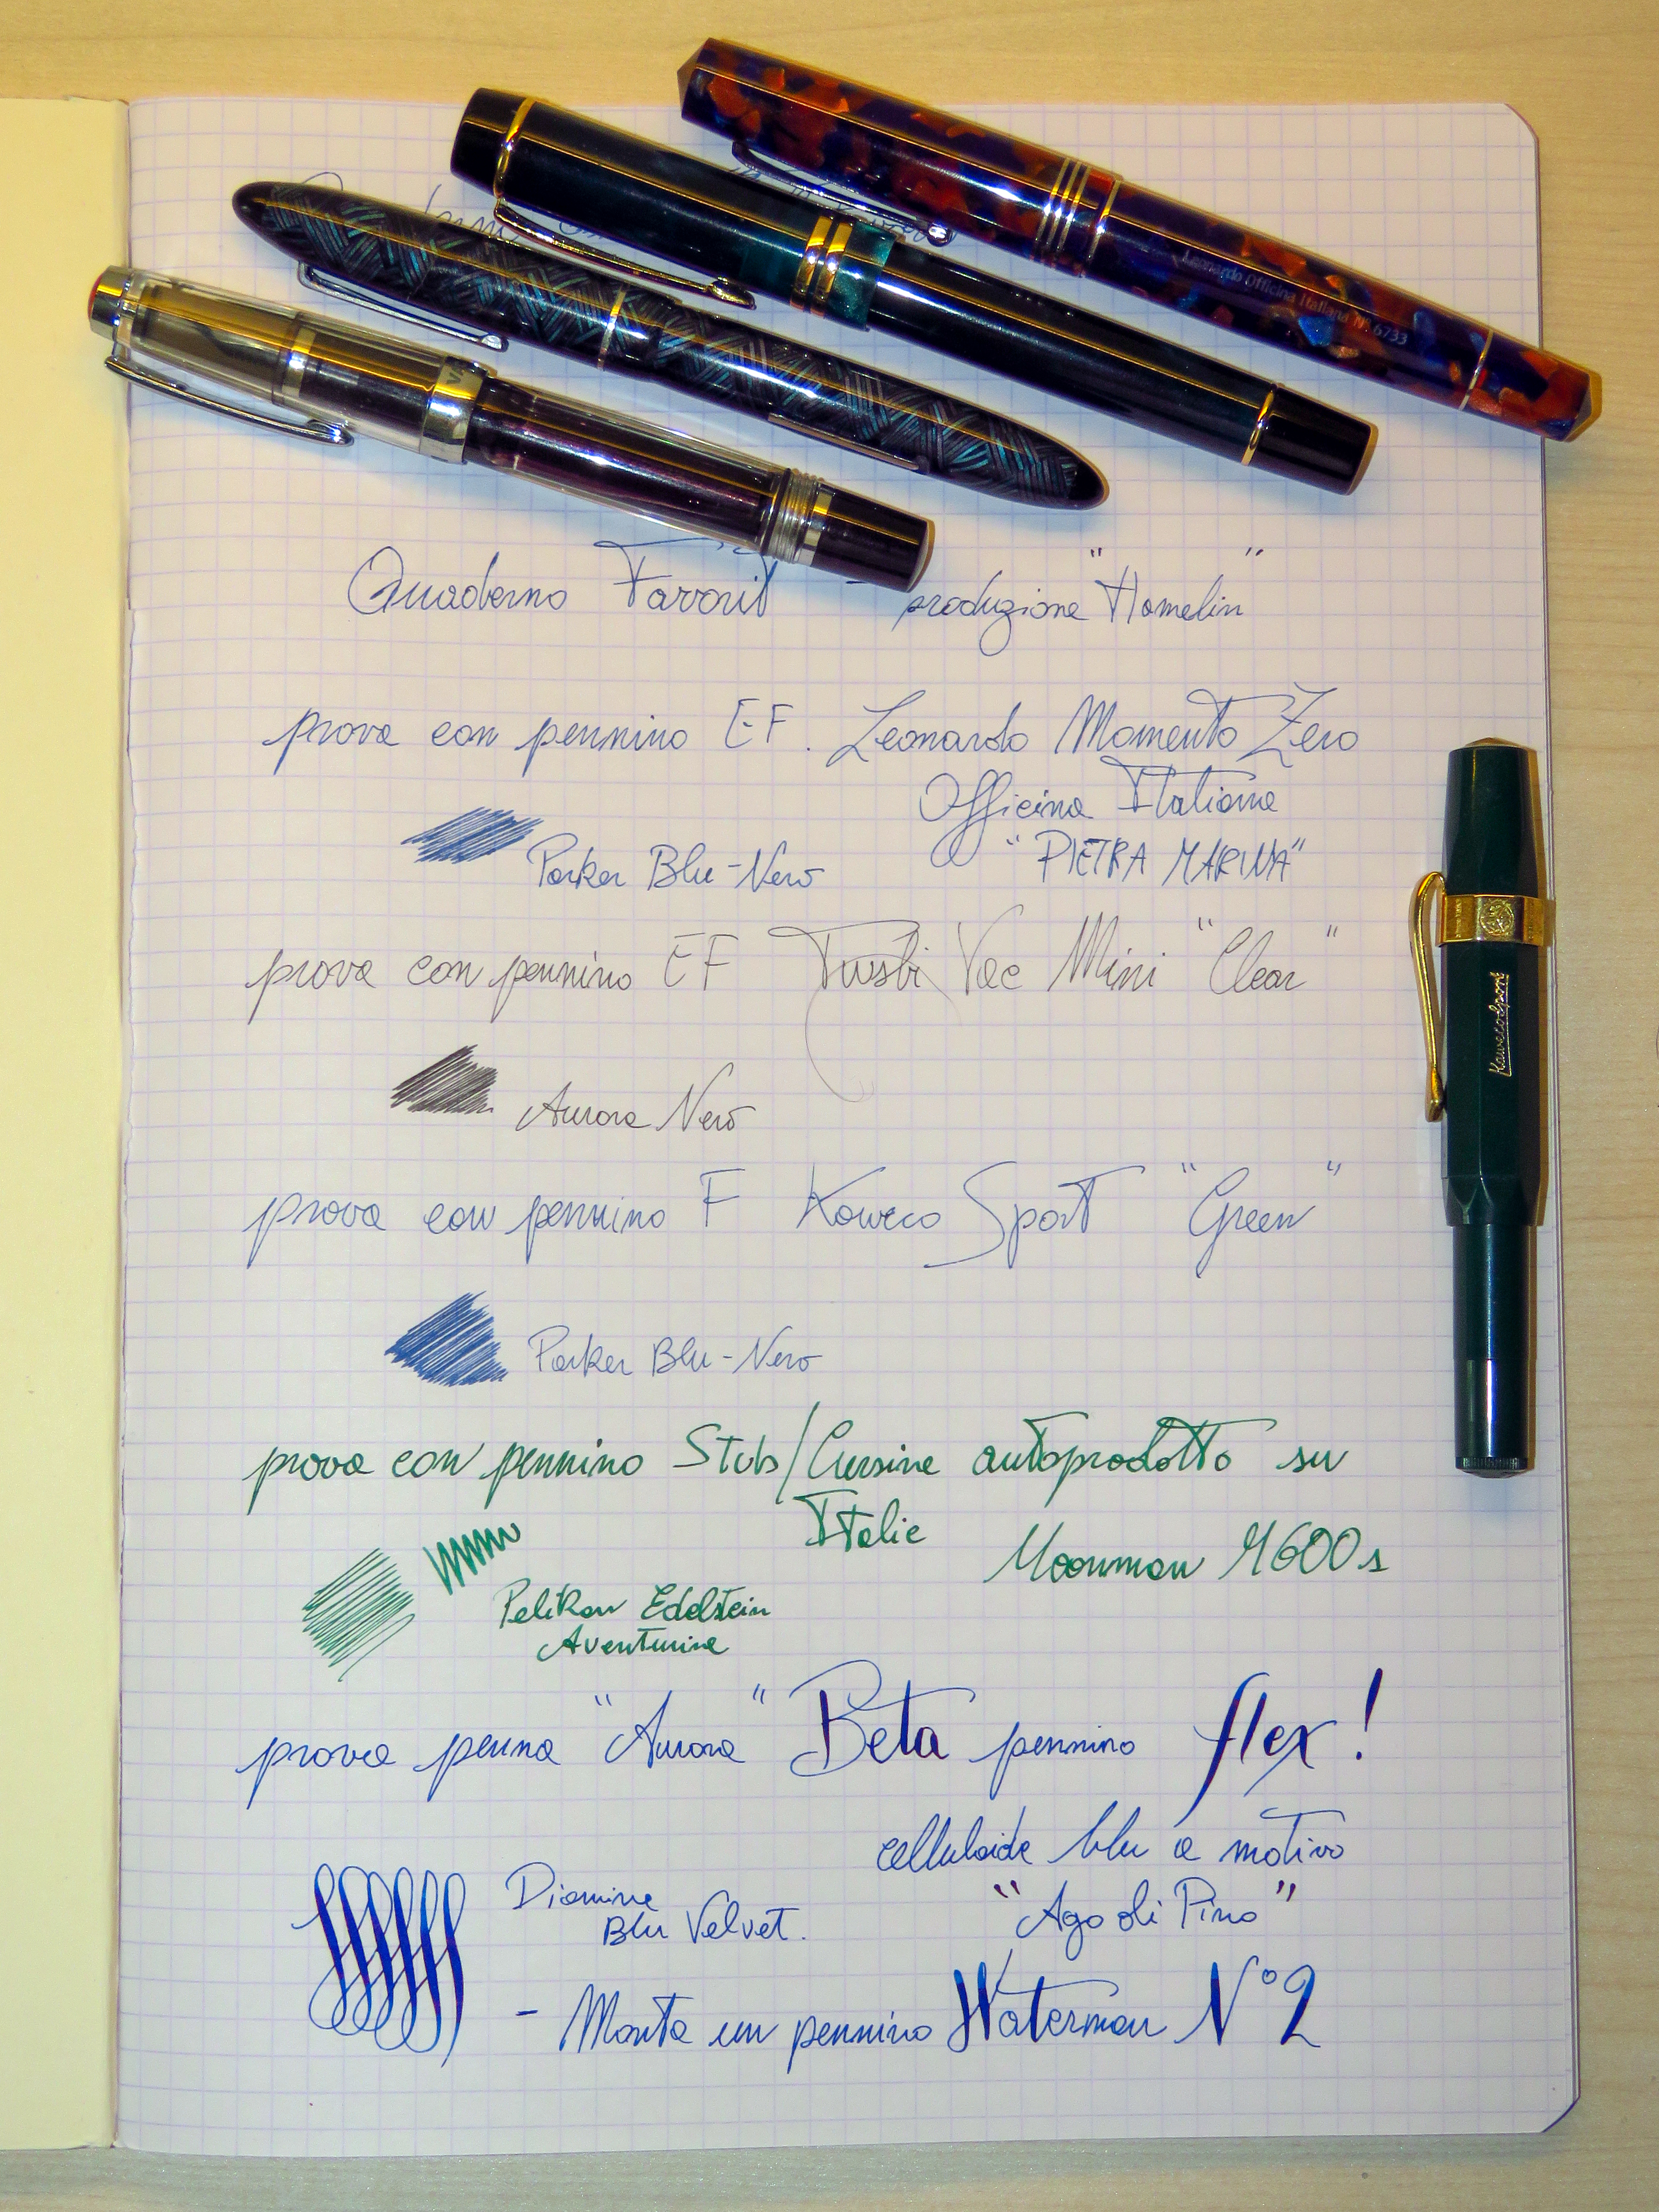 Leonardo Officina Italiana N° 6733
Quaderno Favorit - produzione "Hamelin"
prova con pennino EF. Leonardo Momento Zero
Officina Italiana
"PIETRA MARINA"
Parker Blu-Nero
prova con pennino EF Twsbi Vac Mini "Clear"
Aurora Nero
KawecoSport
prova con pennino F Kaweco Sport "Green"
Parker Blu-Nero
prova con pennino Stub/Cursive autoprodotto su
Italic Moonman M600s
Pelikan Edelstein
Aventurine
prova penna "Aurora" Beta pennino flex!
celluloide blu a motivo
"Ago di Pino"
Diamine
Blu Velvet.
- Monta un pennino Waterman N°2